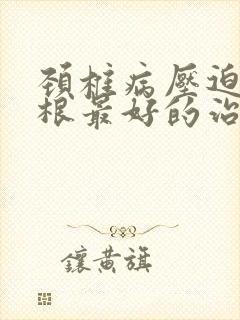 颈椎病壓迫
根最好的治
鑲黄旗